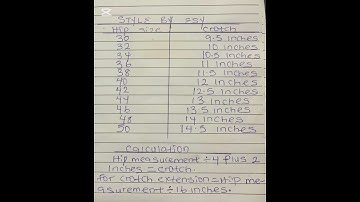 STYLE BY ESY
Hip size crotch
30 9.5 inches
32 10 inches
34 10.5 inches
36 11 inches
38 11.5 inches
40 12 inches
42 12.5 inches
44 13 inches
46 13.5 inches
48 14 inches
50 14.5 inches
calculation
Hip measurement ÷ 4 plus 2
inches = crotch
For crotch extension = Hip me
asurement ÷ 16 inches.